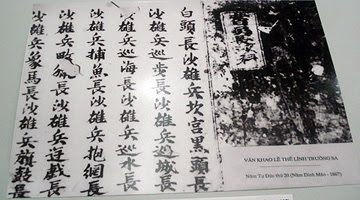 白頭長沙雄兵坎宮黑頭長
沙雄兵巡步長沙雄兵巡城長
沙雄兵巡海長沙雄兵巡水長
沙雄兵捕魚長沙雄兵抱網長
沙雄兵長沙雄兵遊戲長
沙雄兵象馬長沙雄兵旗鼓長
VĂN KHAO LỀ THẾ LÍNH TRƯỜNG SA
Năm Tự Đức thứ 20 (Năm Đinh Mão - 1867)